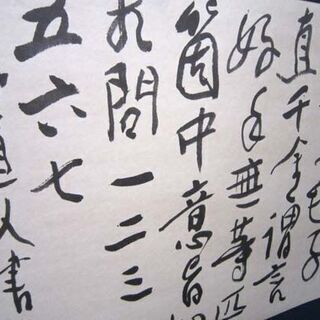 子
直千金謂言
好手無等匹
箇中意旨
相問一二三
五六七
人書